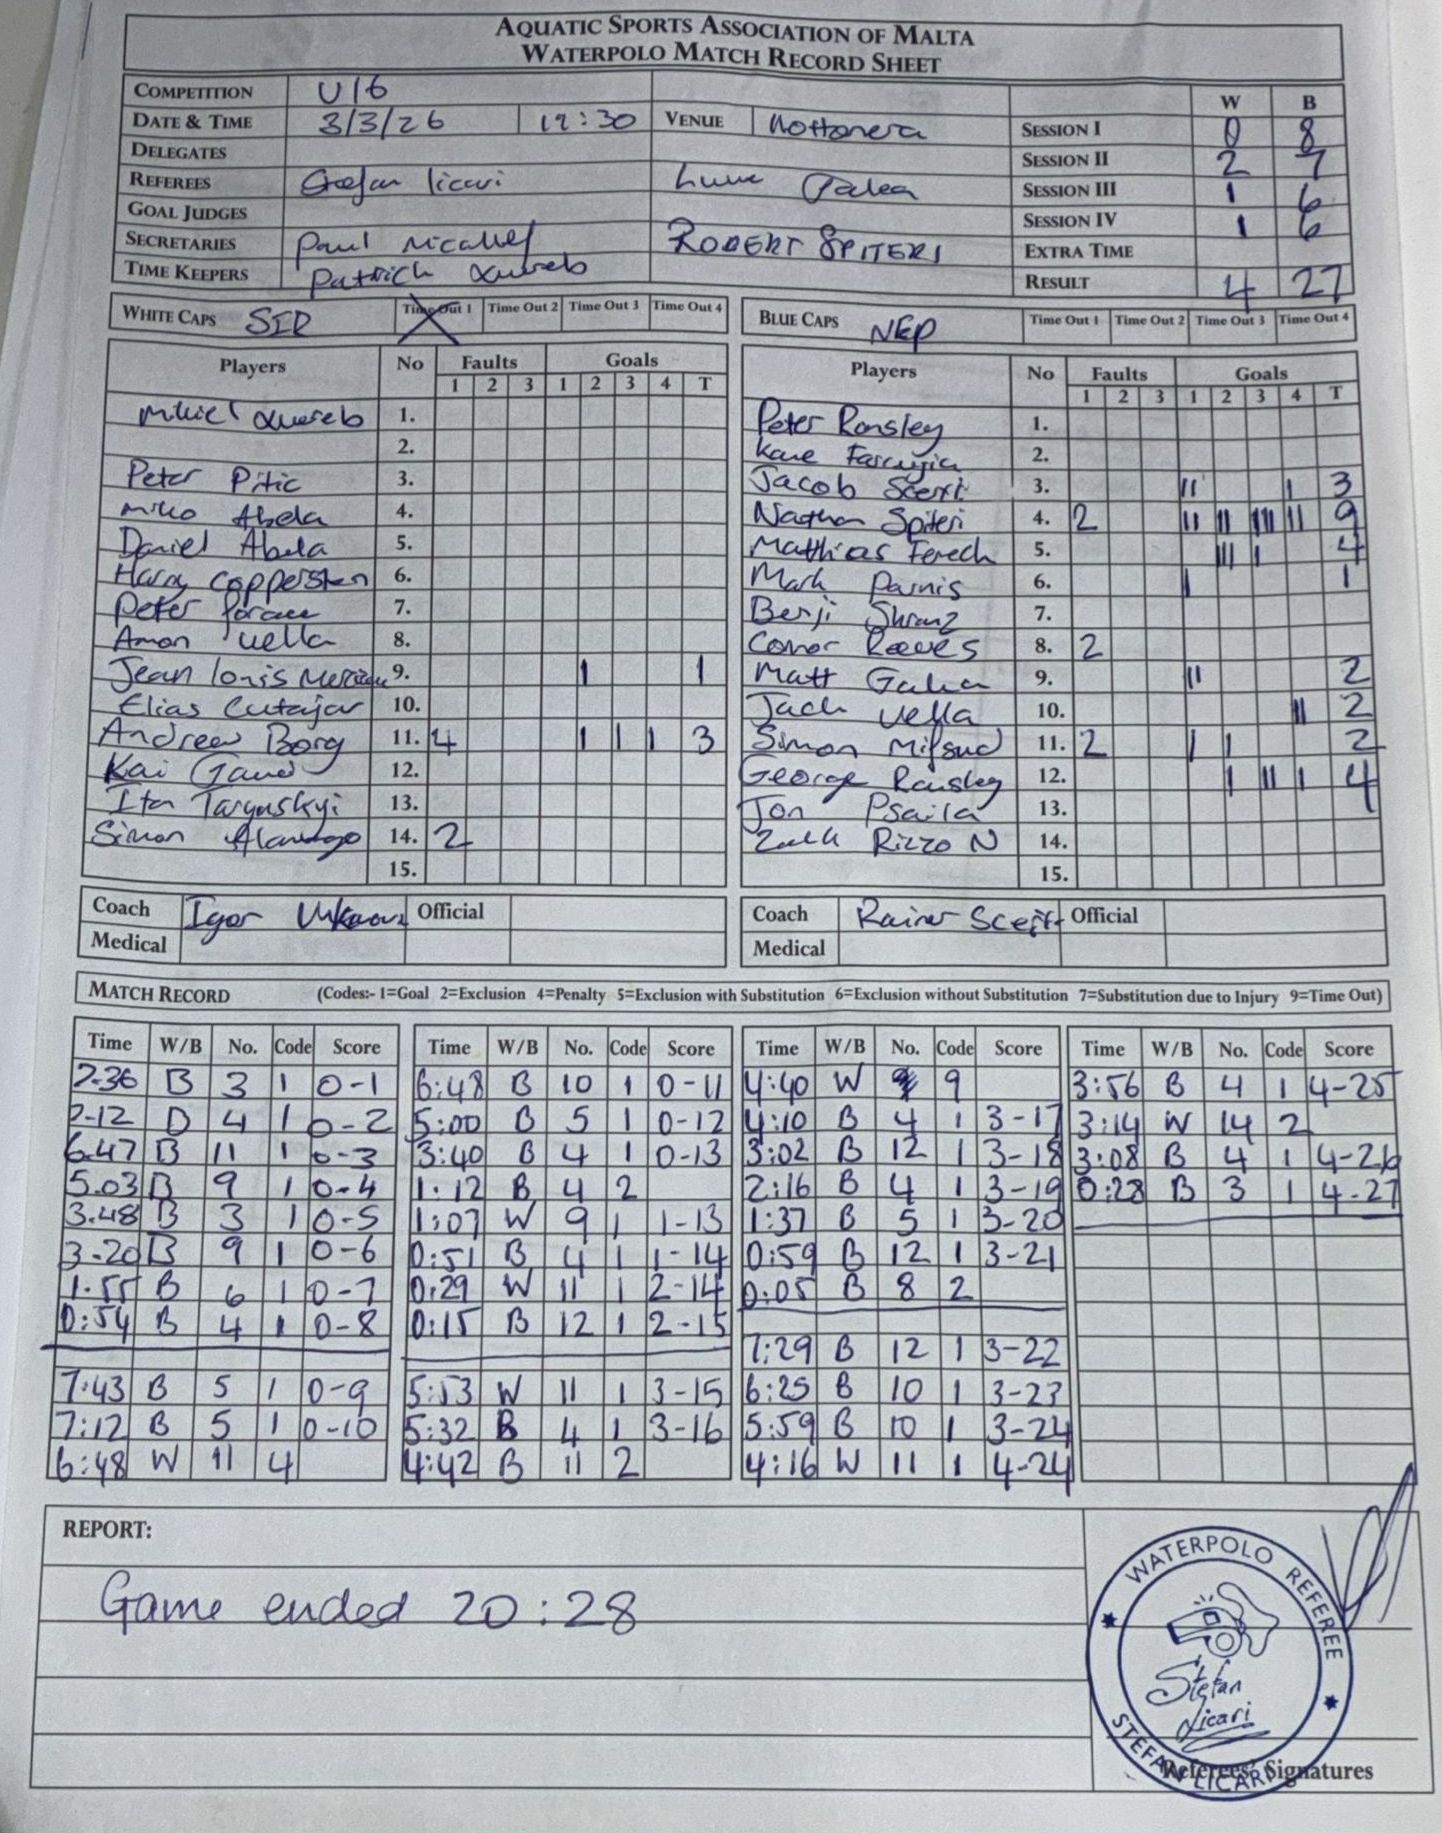 AQUATIC SPORTS ASSOCIATION OF MALTA
WATERPOLO MATCH RECORD SHEET
COMPETITION U16 W B
DATE & TIME 3/3/26 19:30 VENUE SESSION I 0 8
DELEGATES SESSION II 2 7
REFEREES Stefan Licari SESSION III 1 6
GOAL JUDGES SESSION IV 1 6
SECRETARIES Paul Micallef ROBERT SPITERI EXTRA TIME
TIME KEEPERS Patrick Xuereb RESULT 4 27
WHITE CAPS Time Out 1 Time Out 2 Time Out 3 Time Out 4
BLUE CAPS NEP Time Out 1 Time Out 2 Time Out 3 Time Out 4
Players No Faults Goals
1 2 3 1 2 3 4 T
Xuereb 1.
2.
Peter Pitic 3.
Miko Abela 4.
Daniel Abela 5.
Harry 6.
Peter 7.
Vella 8.
Jean Louis 9. I 1
Elias Cutajar 10.
Andrew Borg 11. 4 I I I 3
Kai 12.
13.
Simon 14. 2
15.
Players No Faults Goals
1 2 3 1 2 3 4 T
Peter 1.
Farrugia 2.
Jacob 3. II I 3
Nathan Spiteri 4. 2 II II III II 9
Matthias 5. III I 4
Mark Parnis 6. I 1
Benji 7.
Conor Reeves 8. 2
Matt Galea 9. II 2
Jack Vella 10. II 2
Simon Mifsud 11. 2 I I 2
George 12. I II I 4
Jon Psaila 13.
Rizzo N 14.
15.
Coach Igor Official
Medical
Coach Official
Medical
MATCH RECORD (Codes:- 1=Goal 2=Exclusion 4=Penalty 5=Exclusion with Substitution 6=Exclusion without Substitution 7=Substitution due to Injury 9=Time Out)
Time W/B No. Code Score
7.36 B 3 1 0-1
7-12 B 4 1 0-2
6.47 B 11 1 0-3
5.03 B 9 1 0-4
3.48 B 3 1 0-5
3-20 B 9 1 0-6
1.55 B 6 1 0-7
0:54 B 4 1 0-8
7:43 B 5 1 0-9
7:12 B 5 1 0-10
6:48 W 11 4
Time W/B No. Code Score
6:48 B 10 1 0-11
5:00 B 5 1 0-12
3:40 B 4 1 0-13
1:12 B 4 2
1:07 W 9 1 1-13
0:51 B 4 1 1-14
0:29 W 11 1 2-14
0:15 B 12 1 2-15
5:53 W 11 1 3-15
5:32 B 4 1 3-16
4:42 B 11 2
Time W/B No. Code Score
4:40 W 9
4:10 B 4 1 3-17
3:02 B 12 1 3-18
2:16 B 4 1 3-19
1:37 B 5 1 3-20
0:59 B 12 1 3-21
0:05 B 8 2
7:29 B 12 1 3-22
6:25 B 10 1 3-23
5:59 B 10 1 3-24
4:16 W 11 1 4-24
Time W/B No. Code Score
3:56 B 4 1 4-25
3:14 W 14 2
3:08 B 4 1 4-26
0:28 B 3 1 4-27
REPORT:
Game ended 20:28
WATERPOLO REFEREE
Stefan
Licari
STEFAN LICARI
Referees' Signatures